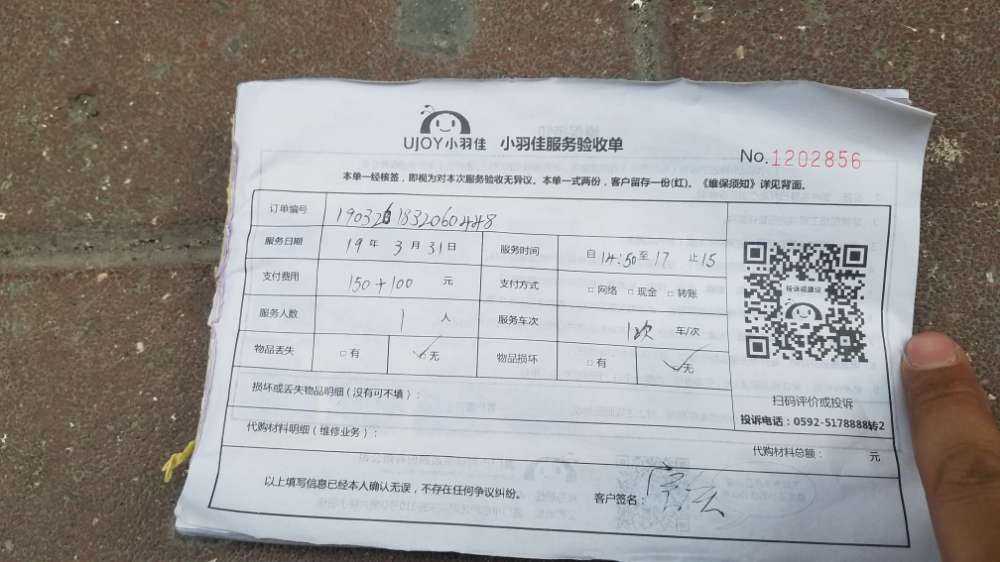 UJOY小羽佳 小羽佳服务验收单
No.1202856
本单一经核签，即视为对本次服务验收无异议。本单一式两份，客户留存一份(红)。《维保须知》详见背面。
订单编号 1903261832060448
服务日期 19 年 3 月 31 日 服务时间 自 14:50 至 17 止 15
支付费用 150+100 元 支付方式 □网络 □现金 □转账
服务人数 1 人 服务车次 1次 车/次
物品丢失 □有 ✓无 物品损坏 □有 ✓无
投诉或建议
扫码评价或投诉
投诉电话：0592-5178888转2
损坏或丢失物品明细（没有可不填）：
代购材料明细（维修业务）： 代购材料总额： 元
以上填写信息已经本人确认无误，不存在任何争议纠纷。 客户签名：